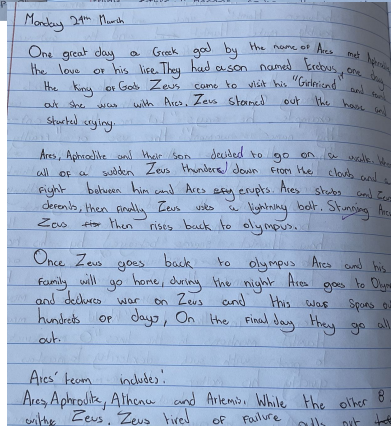 Monday 24th March
One great day a Greek god by the name of Ares met Aphrodite
the love of his life. They had a son named Erebus, one day
the King of Gods Zeus came to visit his "Girlfriend" and found
out she was with Ares. Zeus stormed out the house and
started crying.
Ares, Aphrodite and their son decided to go on a walk
all of a sudden Zeus thunders down from the clouds and a
fight between him and Ares erupts. Ares stabs and
defends, then finally Zeus uses a lightning bolt. Stunning Ares
Zeus then rises back to olympus.
Once Zeus goes back to olympus Ares and his
family will go home, during the night Ares goes to
and declares war on Zeus and this war spans
hundreds of days, On the final day they go all
out.
Ares' team includes:
Ares, Aphrodite, Athena and Artemis. While the other 8
Zeus, Zeus tired of failure